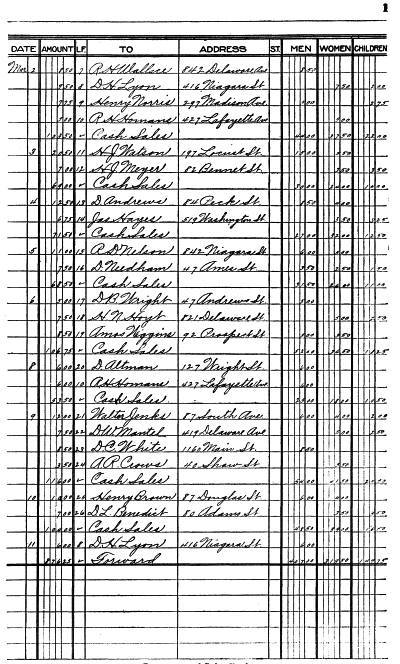 1
DATE AMOUNT L.F. TO ADDRESS ST. MEN WOMEN CHILDREN
Mar 2 850 7 R H Wallace 842 Delaware Ave 850
950 8 D H Lyon 416 Niagara St. 750 200
775 9 Henry Norris 297 Madison Ave. 500 275
700 10 R H Homans 427 Lafayette Ave 700
10350 ✓ Cash Sales 4400 3750 2200
3 2050 11 H J Watson 197 Locust St. 1800 250
700 12 H J Meyer 82 Bennet St. 350 350
6900 ✓ Cash Sales 3000 1000
4 1250 13 D Andrews 84 Peck St. 850 400
675 14 Jas Hayes 519 Washington St 350 325
7150 ✓ Cash Sales 2700 3200 1250
5 1100 15 R D Nelson 842 Niagara St 600
750 16 D. Needham 47 Ames St. 350 250 150
6850 ✓ Cash Sales 3150 2600 1100
6 500 17 D B Wright 47 Andrews St 500
750 18 H N Hoyt 821 Delaware St 500 250
850 19 Amos Wiggins 92 Prospect St 350
10675 ✓ Cash Sales 3650
8 600 20 D. Altman 127 Wright St 600
600 10 R H Homans 427 Lafayette Ave 600
5350 ✓ Cash Sales 1800 1050
9 1200 21 Walter Jenks 87 South Ave 600 400 200
750 22 D W Mantel 419 Delaware Ave 500 250
850 23 D. C. White 1160 Main St. 850
350 24 A R Crows 40 Shaw St 350
11600 ✓ Cash Sales 5400
10 1000 25 Henry Brown 87 Douglas St 600 400
700 26 D L Benedict 80 Adams St 350 350
10000 ✓ Cash Sales
11 600 8 D H Lyon 416 Niagara St. 600
87625 ✓ Forward